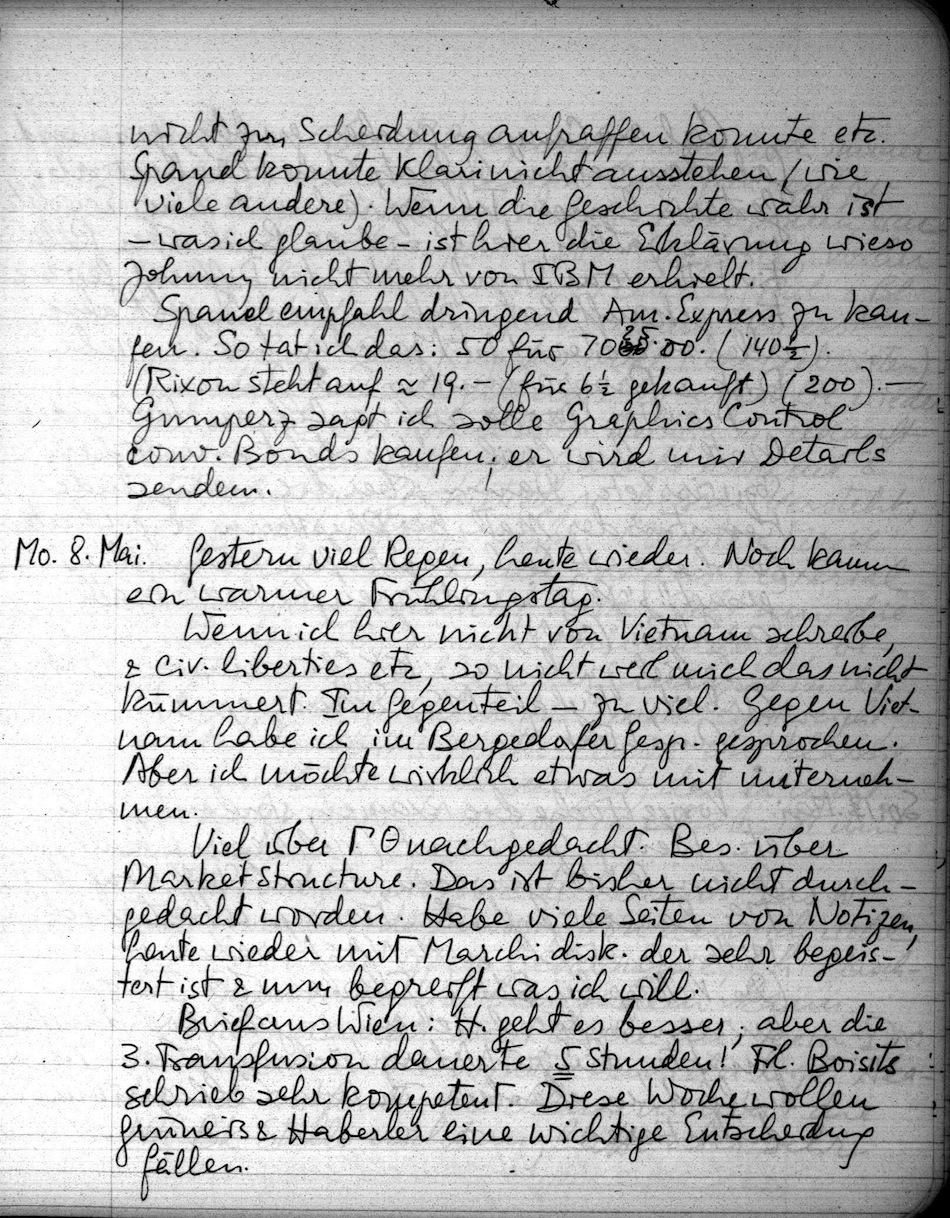 nicht zur Scheidung aufraffen konnte etc.
Spand konnte Klari nicht ausstehen (wie
viele andere). Wenn die Geschichte wahr ist
– was ich glaube – ist hier die Erklärung wieso
Johnny nicht mehr von IBM erhielt.
Spand empfahl dringend Am. Express zu kau-
fen. So tat ich das: 50 für 7025.00. (140½).
(Rixon steht auf ≈ 19.– (für 6½ gekauft) (200). —
Gumperz sagt ich solle Graphics Control
conv. Bonds kaufen; er wird mir Details
senden.
Mo. 8. Mai. Gestern viel Regen, heute wieder. Noch kaum
ein warmer Frühlingstag.
Wenn ich hier nicht von Vietnam schreibe,
& civ. liberties etc, so nicht weil mich das nicht
kümmert. Im Gegenteil – zu viel. Gegen Viet-
nam habe ich im Bergedofer Gesp. gesprochen.
Aber ich möchte wirklich etwas mit unterneh-
men.
Viel über Γ Θ nachgedacht. Bes. über
Market Structure. Das ist bisher nicht durch-
gedacht worden. Habe viele Seiten von Notizen,
heute wieder mit Marchi disk. der sehr begeis-
tert ist & nun begreift was ich will.
Brief aus Wien: H. geht es besser, aber die
3. Transfusion dauerte 5 Stunden! Fl. Boisits
schrieb sehr kompetent. Diese Woche wollen
Grüneis & Haberler eine wichtige Entscheidung
fällen.